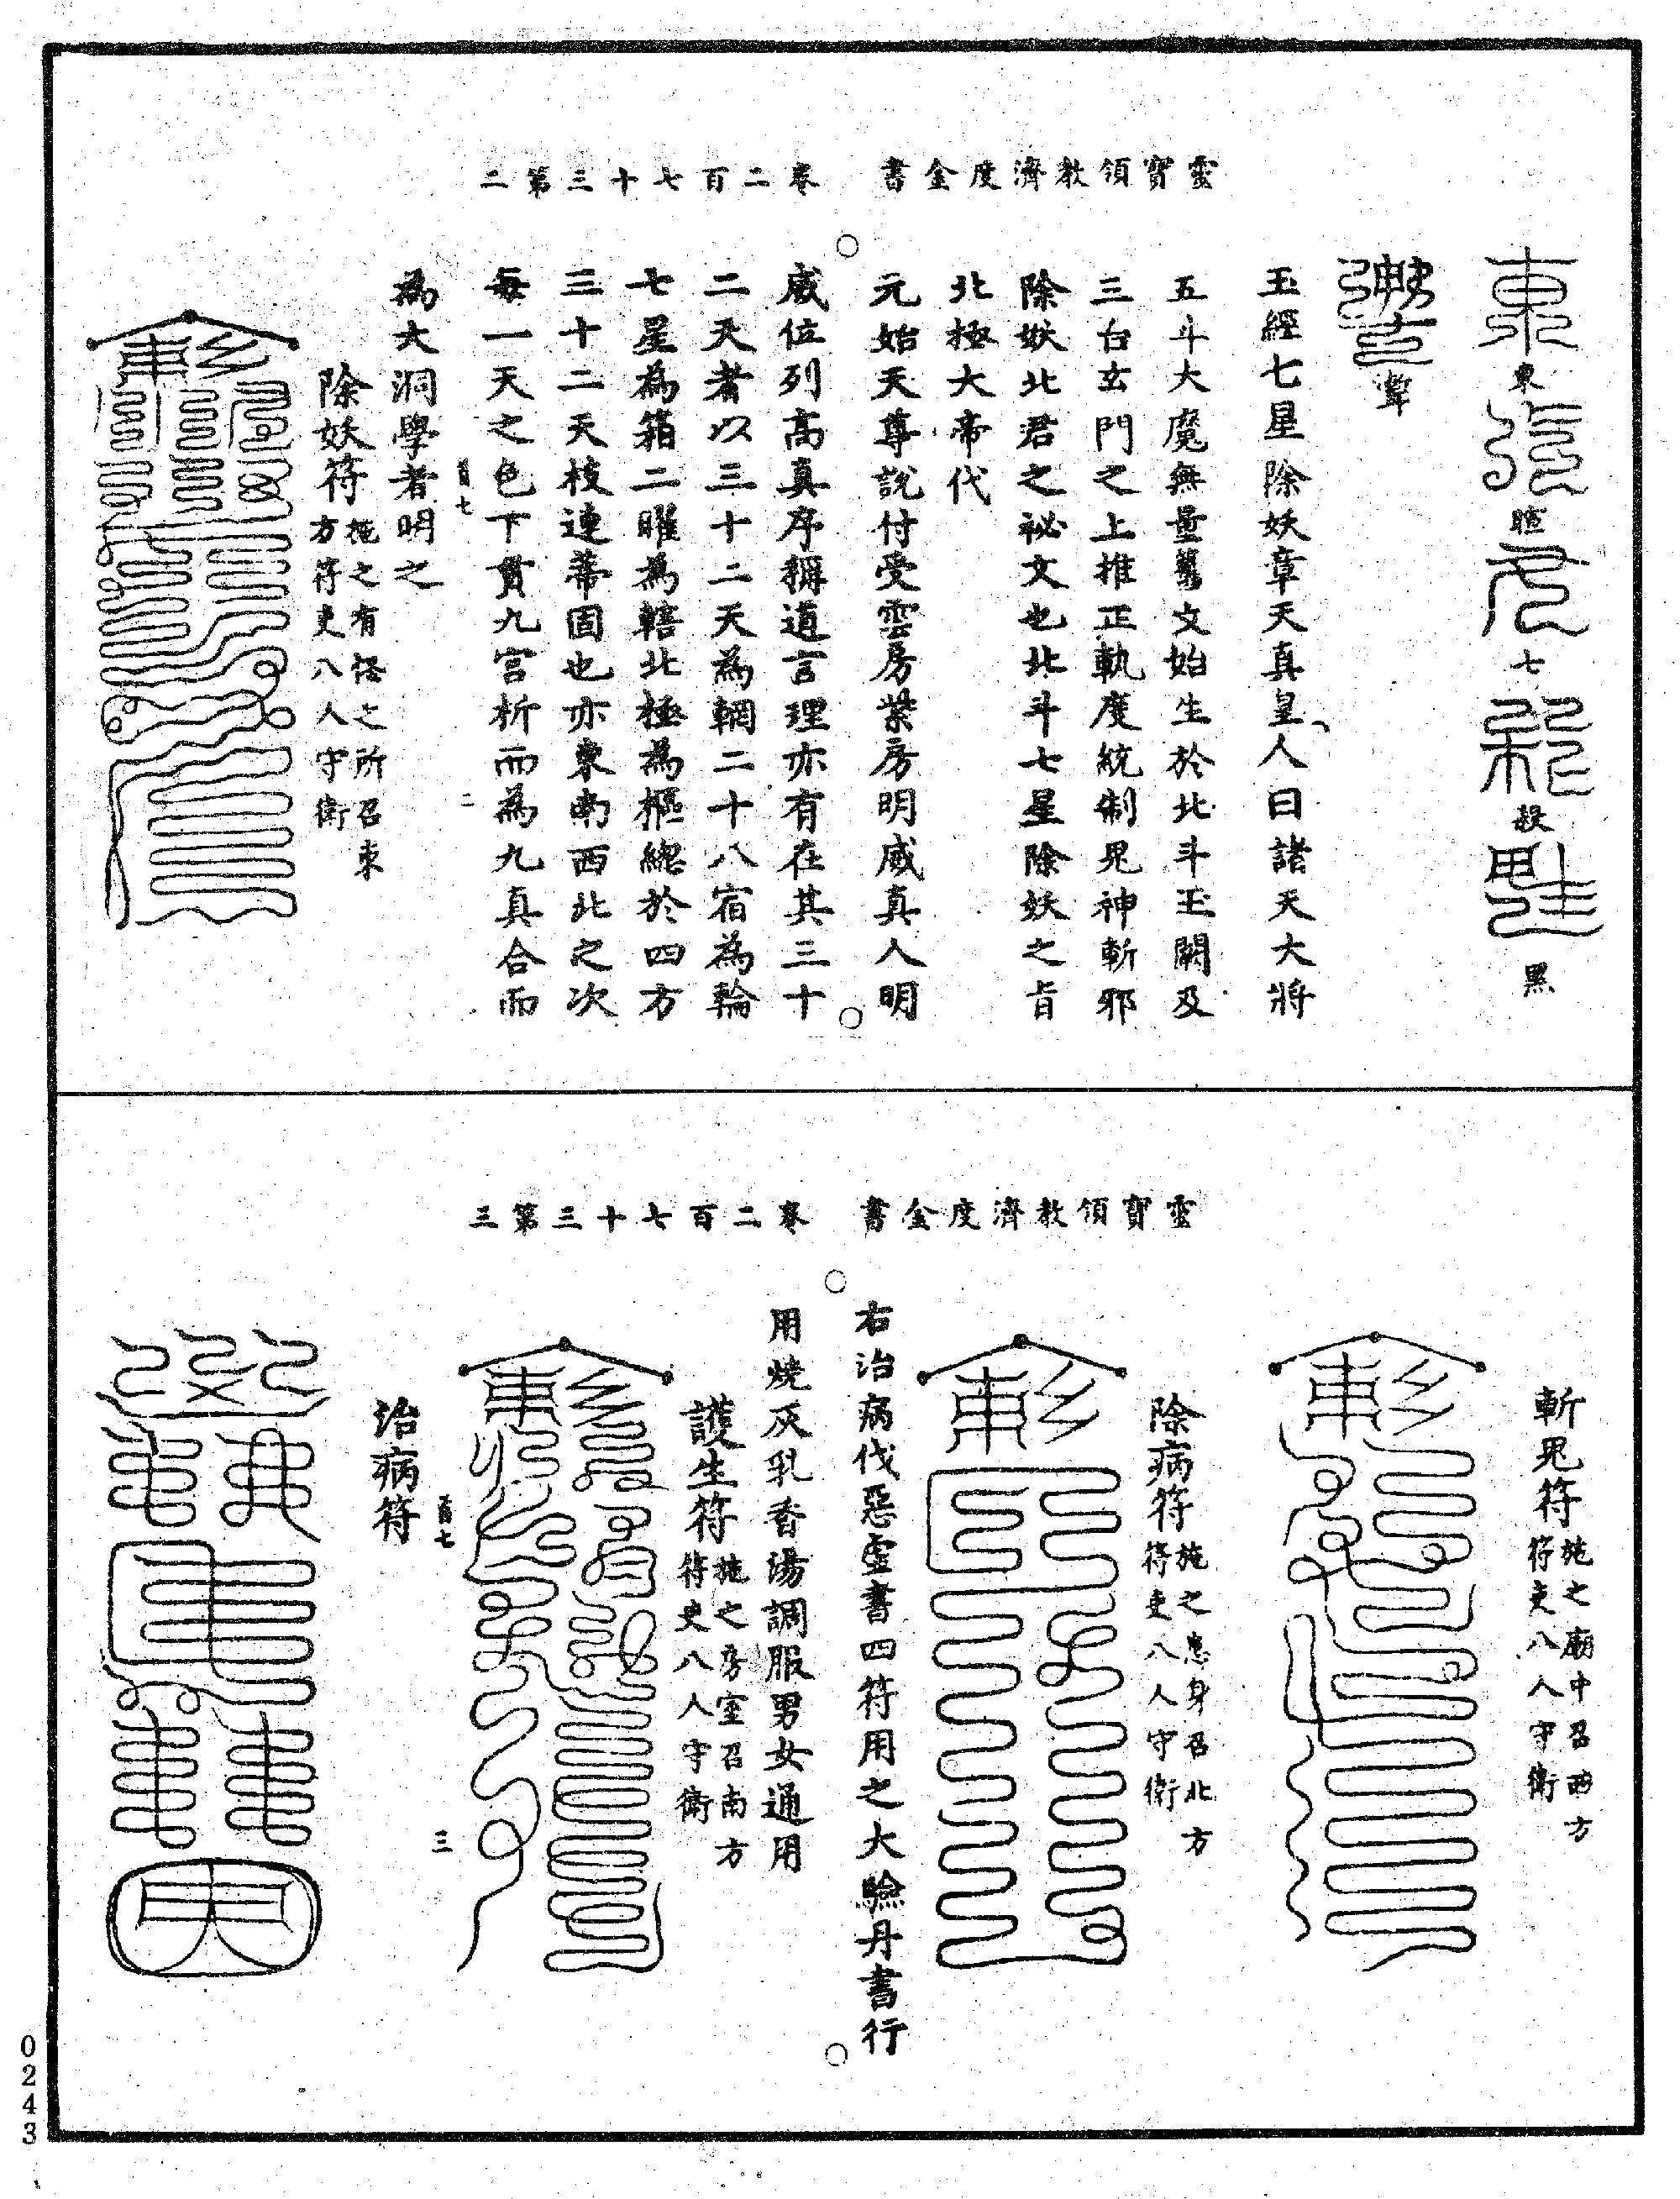 靈寶領教濟度金書 卷二百七十三第二
東
暄
七
殺
黑
玉經七星除妖章天真皇人曰諸天大將
五斗大魔無量舊文始生於北斗玉闕及
三台玄門之上推正軌度統制鬼神斬邪
除妖北君之祕文也北斗七星除妖之旨
北極大帝代
元始天尊說付受雲房紫房明威真人明
威位列高真序稱道言理亦有在其三十
二天者以三十二天為輞二十八宿為輪
七星為箱二曜為轄北極為樞總於四方
三十二天枝連蒂固也亦東南西北之次
每一天之色下貫九宮析而為九真合而
百七
二
為大洞學者明之
除妖符
施之有怪之所召東
方符吏八人守衛
靈寶領教濟度金書 卷二百七十三第三
斬鬼符
施之廟中召西方
符吏八人守衛
除病符
施之患身召北方
符吏八人守衛
右治病伐惡靈書四符用之大驗丹書行
用燒灰乳香湯調服男女通用
護生符
施之房室召南方
符吏八人守衛
百七
三
治病符
0243